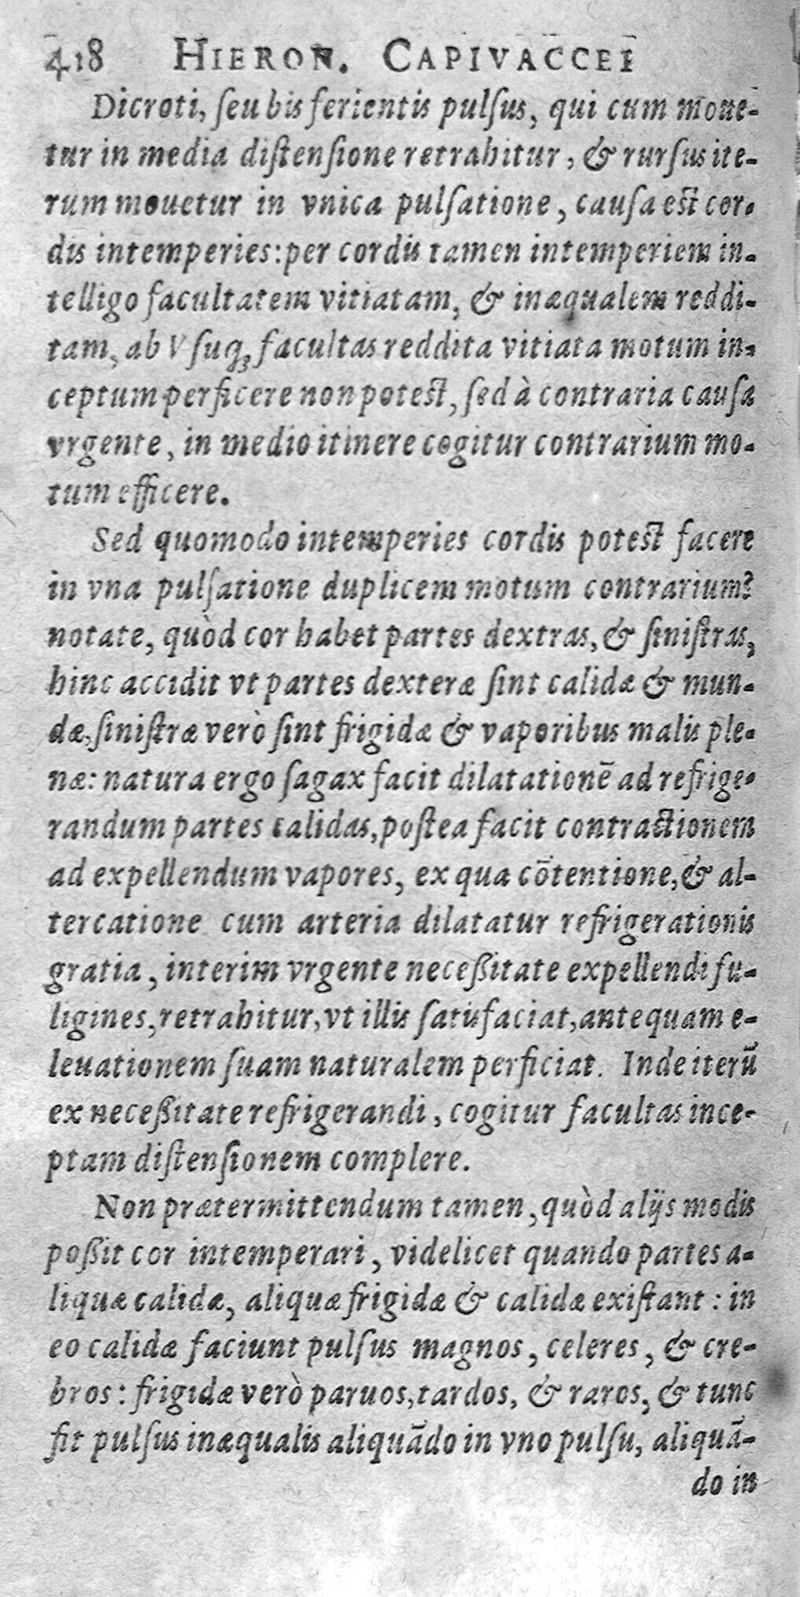 418 HIERON. CAPIVACCEI
Dicroti, ſeu bis ferientis pulſus, qui cum moue-
tur in media diſtenſione retrahitur, & rurſus ite-
rum mouetur in vnica pulſatione, cauſa eſt cor-
dis intemperies: per cordis tamen intemperiem in-
telligo facultatem vitiatam, & inæqualem reddi-
tam, ab Vſuq́; facultas reddita vitiata motum in-
ceptum perficere non poteſt, ſed à contraria cauſa
vrgente, in medio itinere cogitur contrarium mo-
tum efficere.
Sed quomodo intemperies cordis poteſt facere
in vna pulſatione duplicem motum contrarium?
notate, quòd cor habet partes dextras, & ſiniſtras,
hinc accidit vt partes dexteræ ſint calidæ & mun-
dæ, ſiniſtræ verò ſint frigidæ & vaporibus malis ple-
næ: natura ergo ſagax facit dilatationē ad refrige-
randum partes calidas, poſtea facit contractionem
ad expellendum vapores, ex qua cōtentione, & al-
tercatione cum arteria dilatatur refrigerationis
gratia, interim vrgente neceßitate expellendi fu-
ligines, retrahitur, vt illis ſatisfaciat, antequam e-
leuationem ſuam naturalem perficiat. Inde iterū
ex neceßitate refrigerandi, cogitur facultas ince-
ptam diſtenſionem complere.
Non prætermittendum tamen, quòd alijs modis
poßit cor intemperari, videlicet quando partes a-
liquæ calidæ, aliquæ frigidæ & calidæ exiſtant: in
eo calidæ faciunt pulſus magnos, celeres, & cre-
bros: frigidæ verò paruos, tardos, & raros, & tunc
fit pulſus inæqualis aliquādo in vno pulſu, aliquā-
do in